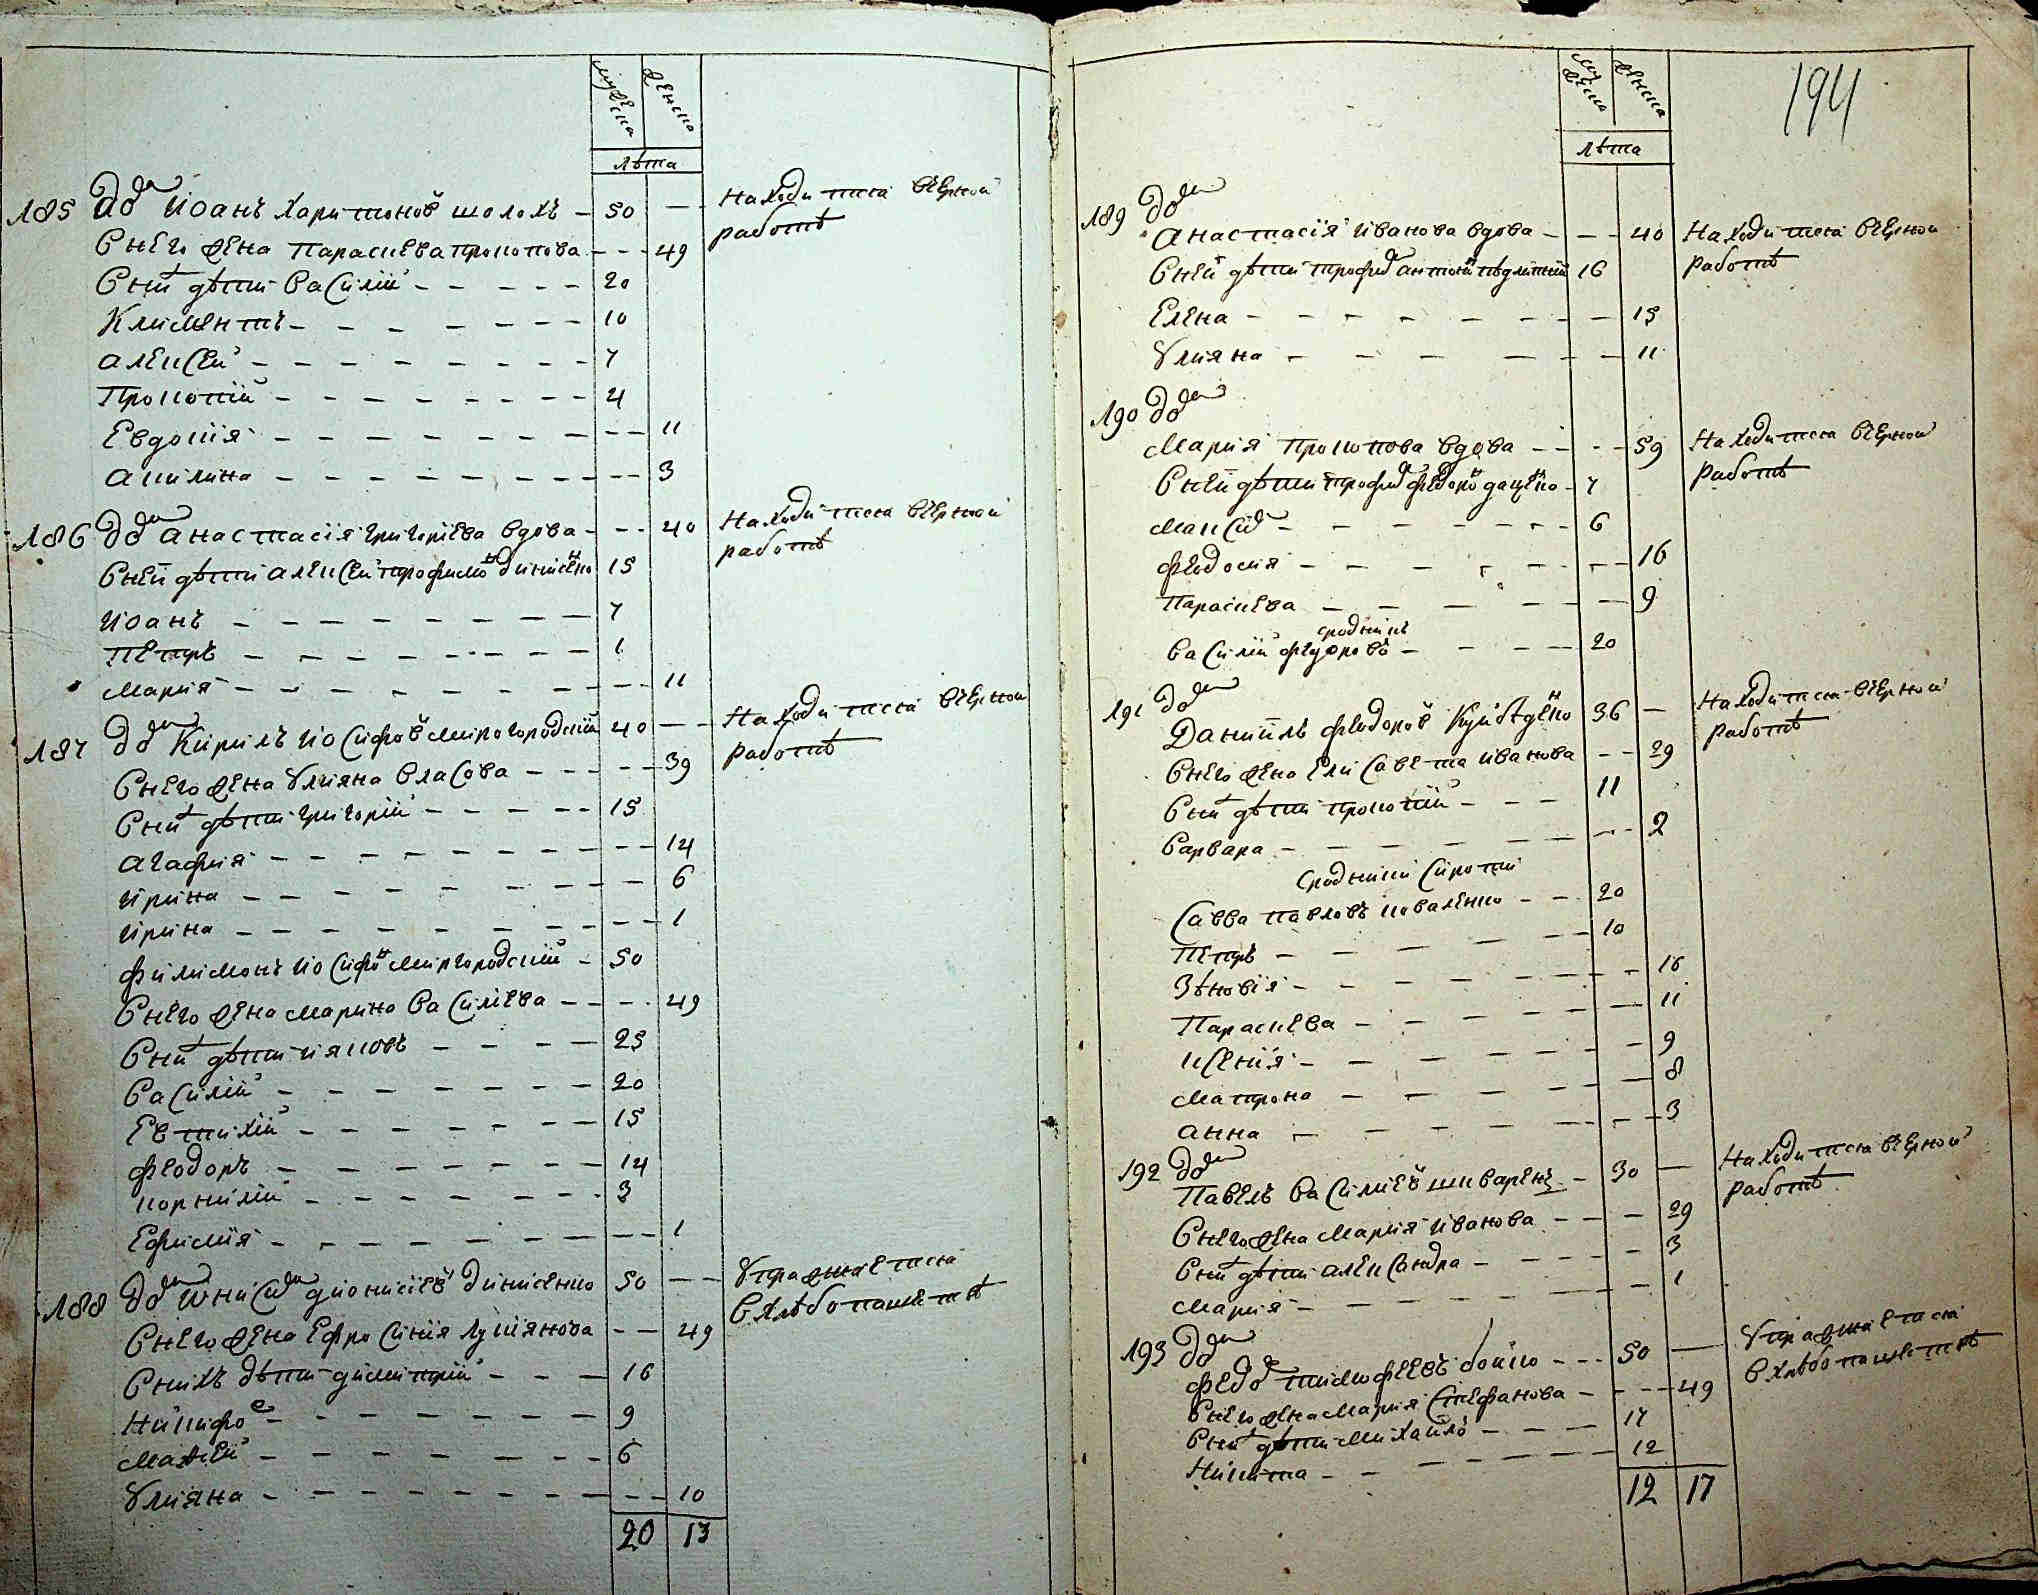 мужеска
женска
лѣта
185 Дво Иоанъ Харитоновъ шолохъ - 50 - Находится вчерной
работѣ
Снего жена Параскева прокопова - - - 49
Сни дѣти Василий - - - - - 20
Климентъ - - - - - - - 10
Алексей - - - - - - - 7
Прокопий - - - - - - - 4
Евдокия - - - - - - - - 11
Акилина - - - - - - - - 3
186 Дво Анастасия григориева вдова - - - 40 Находится вчерной
работѣ
Сней дѣти алексей трофимо динисенко 15
Иоанъ - - - - - - - 7
Петръ - - - - - - - 1
Мария - - - - - - - - 11
187 Дво Кирилъ иосифовъ миргородский 40 - Находится вчерной
работѣ
Снего жена Улияна Власова - - - - 39
Сни дѣти григорий - - - - - 15
Агафия - - - - - - - - 14
Ирина - - - - - - - - 6
Ирина - - - - - - - - 1
Филимонъ иосифо миргородский - 50
Снего жена Марина Василиева - - - 49
Сни дѣти Ияковъ - - - - 25
Василий - - - - - - 20
Евтихий - - - - - - 15
Феодоръ - - - - - - 14
Корнилий - - - - - - 3
Ефимия - - - - - - - 1
188 Дво дионисиевъ динисенко 50 - Упражняется
вхлѣбопашествѣ
Снего жена Ефросиния лукиянова - - 49
Снихъ дѣти димитрий - - - 16
Никифо - - - - - - 9
Матѳей - - - - - - 6
Улияна - - - - - - - 10
20 13
194
мужеска
женска
лѣта
189 Дво
Анастасия Иванова вдова - - - 40 Находится вчерной
работѣ
Сней дѣти трофи антон 16
Елена - - - - - - - 15
Улияна - - - - - - 11
190 Дво
Мария Прокопова вдова - - - - 59 Находится вчерной
работѣ
Сней дѣти трофи федоро даценко - 7
Макси - - - - - - - 6
Феодосия - - - - - - - 16
Параскева - - - - - - 9
сродникъ
Василий федоровъ - - - - 20
191 Дво
Даниилъ феодоровъ 36 - Находится вчерной
работѣ
Снего жена Елисавета Иванова - - 29
Сни дѣти прокопий - - - 11
Варвара - - - - - - - 2
Сродники Сироти
Савва павловъ коваленко - - 20
Петръ - - - - - 10
Зѣновия - - - - - - - 16
Параскева - - - - - - 11
Ксения - - - - - - 9
Матрона - - - - - - 8
Анна - - - - - - - 3
192 Дво
Павелъ Василиевъ шкваренъ - 30 - Находится вчерной
работѣ
Снего жена Мария Иванова - - - 29
Сни дѣти александра - - - - 3
Мария - - - - - - - 1
193 Дво
Федо тимофеевъ бойко - - - 50 - Упражняется
вхлѣбопашествѣ
Снего жена Мария Стефанова - - - - 49
Сни дѣти Михайло - - - 17
Никита - - - - - - 12
12 17